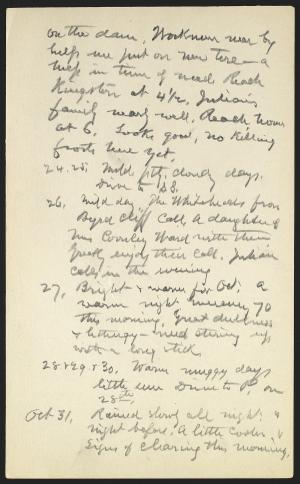 on the dam. Workmen near by
help me put on new tire - a
help in time of need. Reach
Kingston at 4 1/2. Julian's
family nearly well. Reach home
at 6. Looks good, no killing
frosts here yet.
24. 25. Mild, cloudy days.
Drive to
26. Mild day. The Whiteheads from
Byrdcliff call, a daughter of
Mrs Coonley Ward with them.
Greatly enjoy their call. Julian
calls in the evening
27. Bright & warm for Oct; a
warm night - mercury 70
this morning. Great dullness
& lethargy - need stirring up
with a long stick.
28 & 29 & 30. Warm muggy days
little sun. Drive to P. on
28th.
Oct 31. Rained slowly all night &
night before. A little cooler.
Signs of clearing this morning.